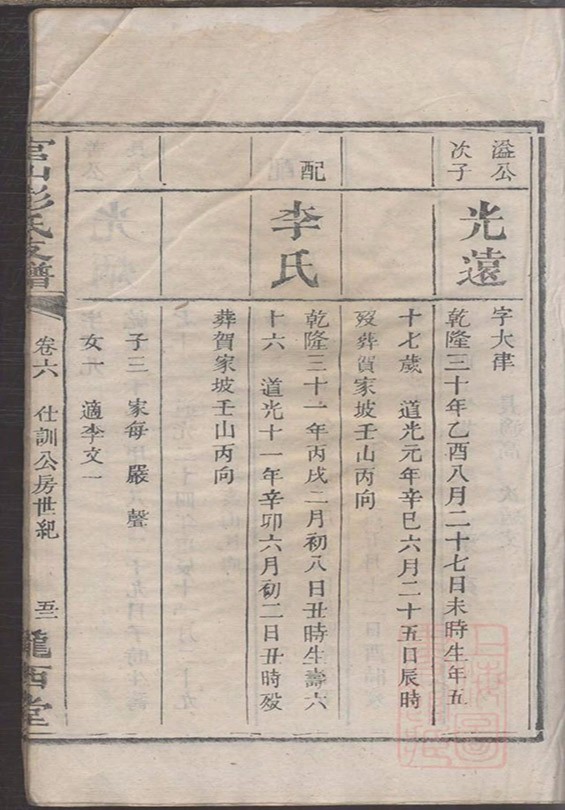 溢公
次子
光遠
字大律
乾隆三十年乙酉八月二十七日未時生年五
十七歲 道光元年辛巳六月二十五日辰時
歿葬賀家坡壬山丙向
配
李氏
乾隆三十一年丙戌二月初八日丑時生壽六
十六 道光十一年辛卯六月初二日丑時歿
葬賀家坡壬山丙向
子三 家每 嚴 聲
女 適李文一
官山彭氏支譜 卷六 仕訓公房世紀 隴西堂